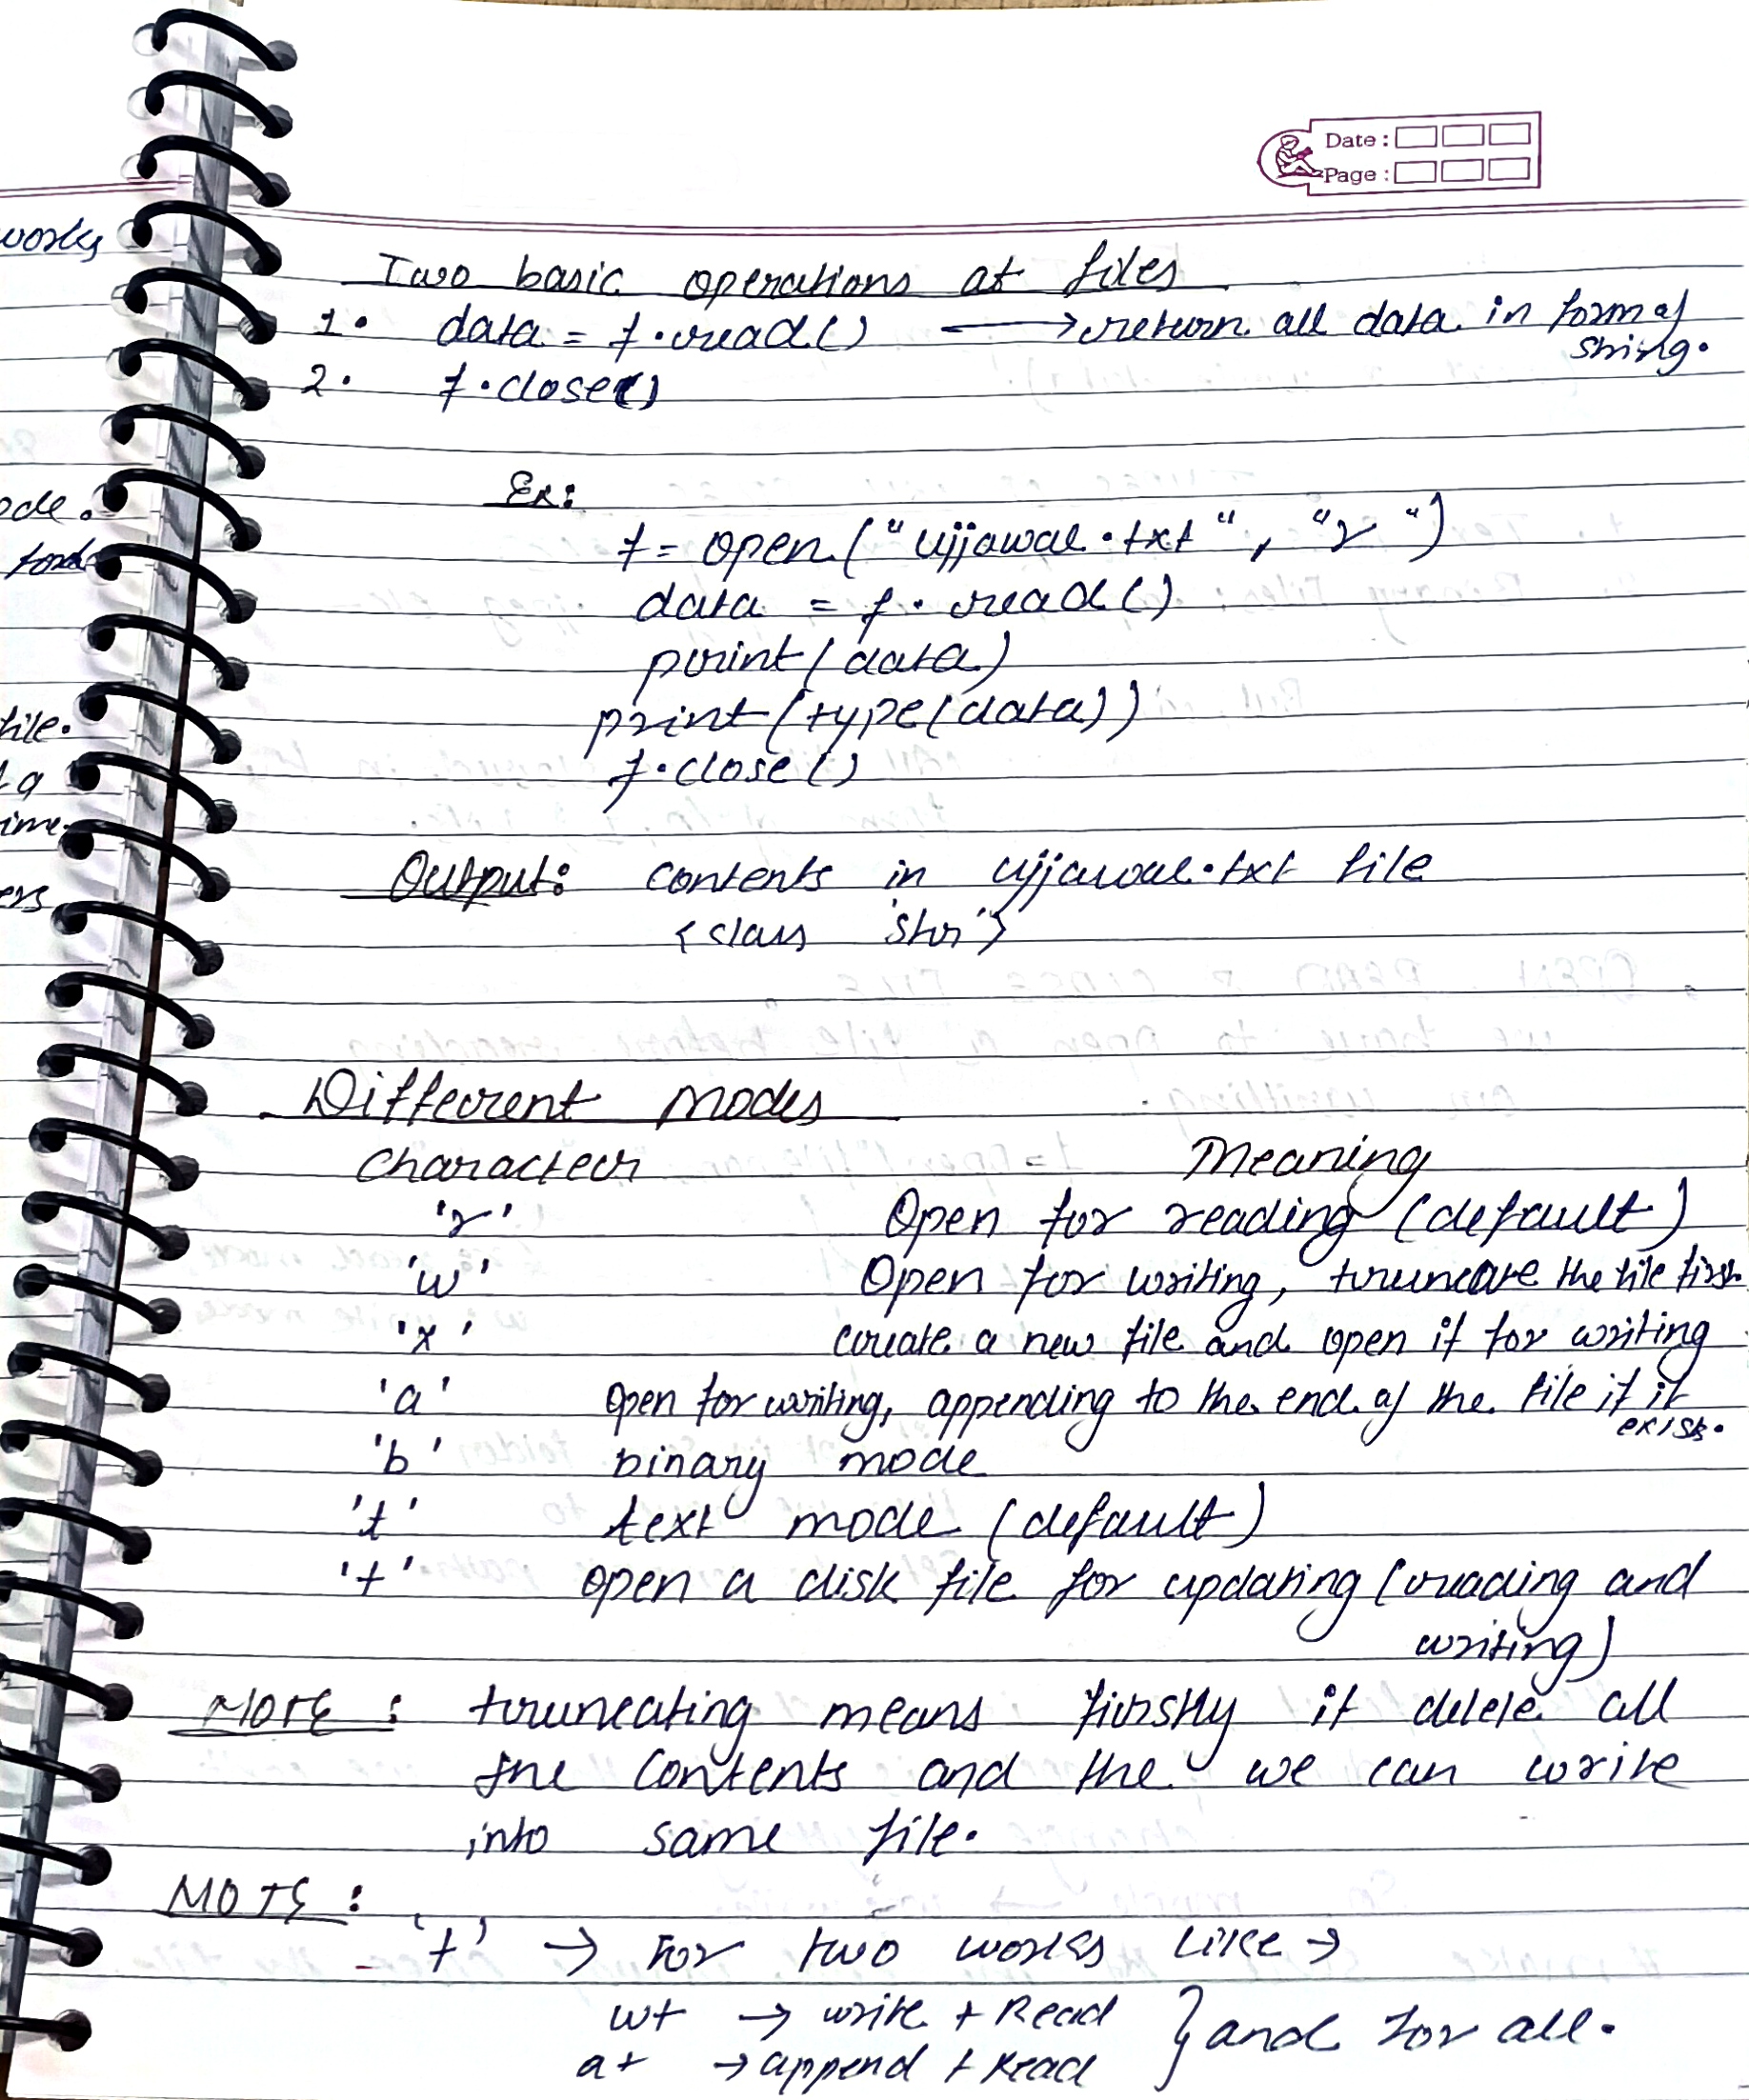 Date :
Page :
works
ode.
file.
t a
ime.
ers
Two basic operations at files
1. data = f.read() ⟶ return all data in form of
string.
2. f.close()
Ex:
f = open("ujjawal.txt", "r")
data = f.read()
print(data)
print(type(data))
f.close()
Output: contents in ujjawal.txt file
<class 'str'>
Different modes
Character Meaning
'r' Open for reading (default)
'w' Open for writing, truncate the file first
'x' create a new file and open it for writing
'a' open for writing, appending to the end of the file if it
exists.
'b' binary mode
't' text mode (default)
'+' open a disk file for updating (reading and
writing)
NOTE : truncating means firstly it delete all
the contents and the we can write
into same file.
NOTE :
'+' → For two works like →
w+ → write + Read
a+ → append + Read } and for all.